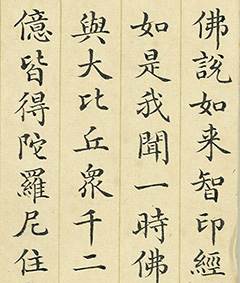 佛說如来智印經
如是我聞一時佛
與大比丘眾千二
億皆得陀羅尼住